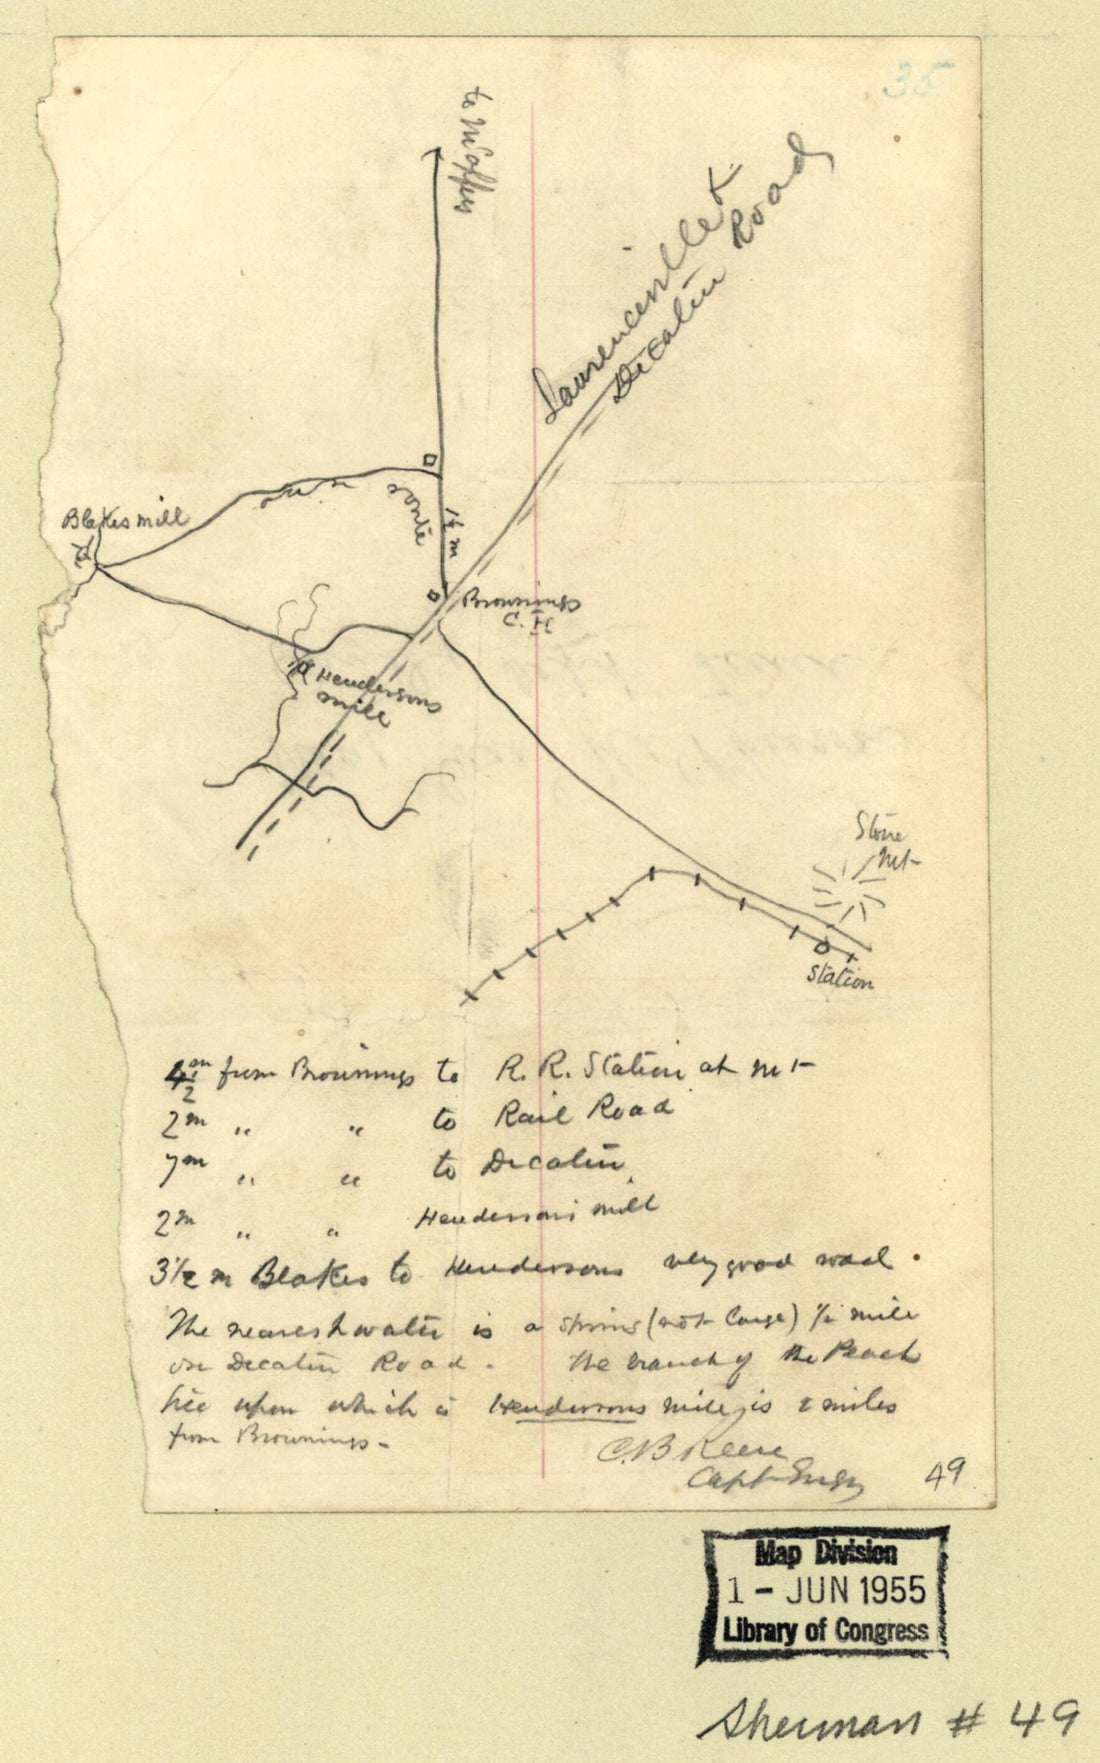 35
to McAffees
Lawrenceville &
Decatur Road
our route
1½ m
Blakes mill
Brownings
C. H
Hendersons
mill
Stone
Mt
Station
4½ m from Brownings to R. R. Station at Mt
2m " " to Rail Road
7m " " to Decatur
2m " " Hendersons mill
3½ m Blakes to Hendersons very good road.
The nearest water is a spring (not large) ½ mile
on Decatur Road. The branch of the Peach
tree upon which is Hendersons mill, is 2 miles
from Brownings -
C.B Reese
Capt Engr
49
Map Division
1 - JUN 1955
Library of Congress
Sherman # 49